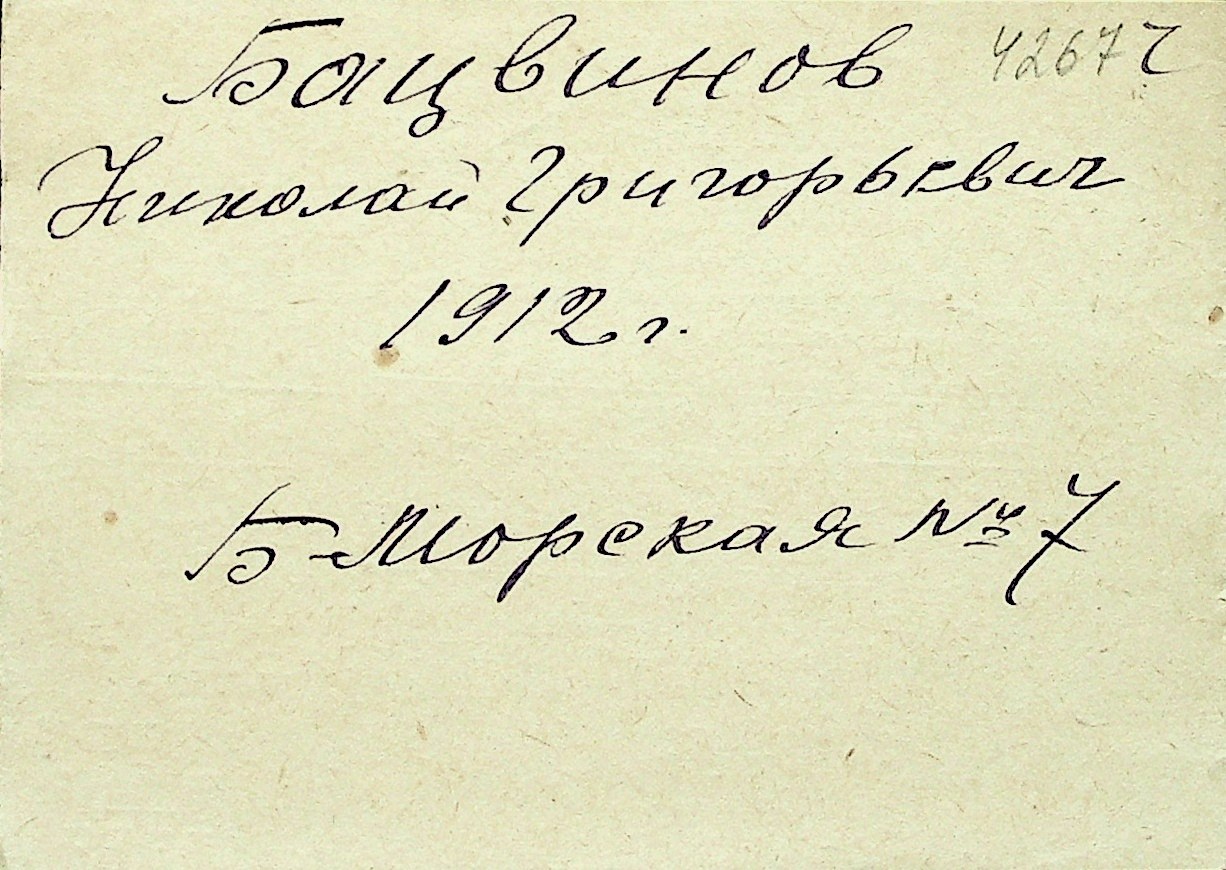 Бацвинов 4267 ч
Николай Григорьевич
1912 г.
Б-Морская № 7